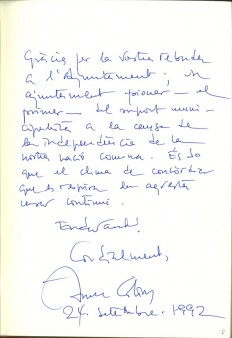 Gràcies per la vostra rebuda
a l'Ajuntament; un
ajuntament pioner — el
primer — del suport muni-
cipalista a la causa de
la independència de la
nostra nació comuna. És
que el clima de concòrdia
que es respira en aquesta
continuï.
Endavant!
Cordialment,
24. setembre. 1992